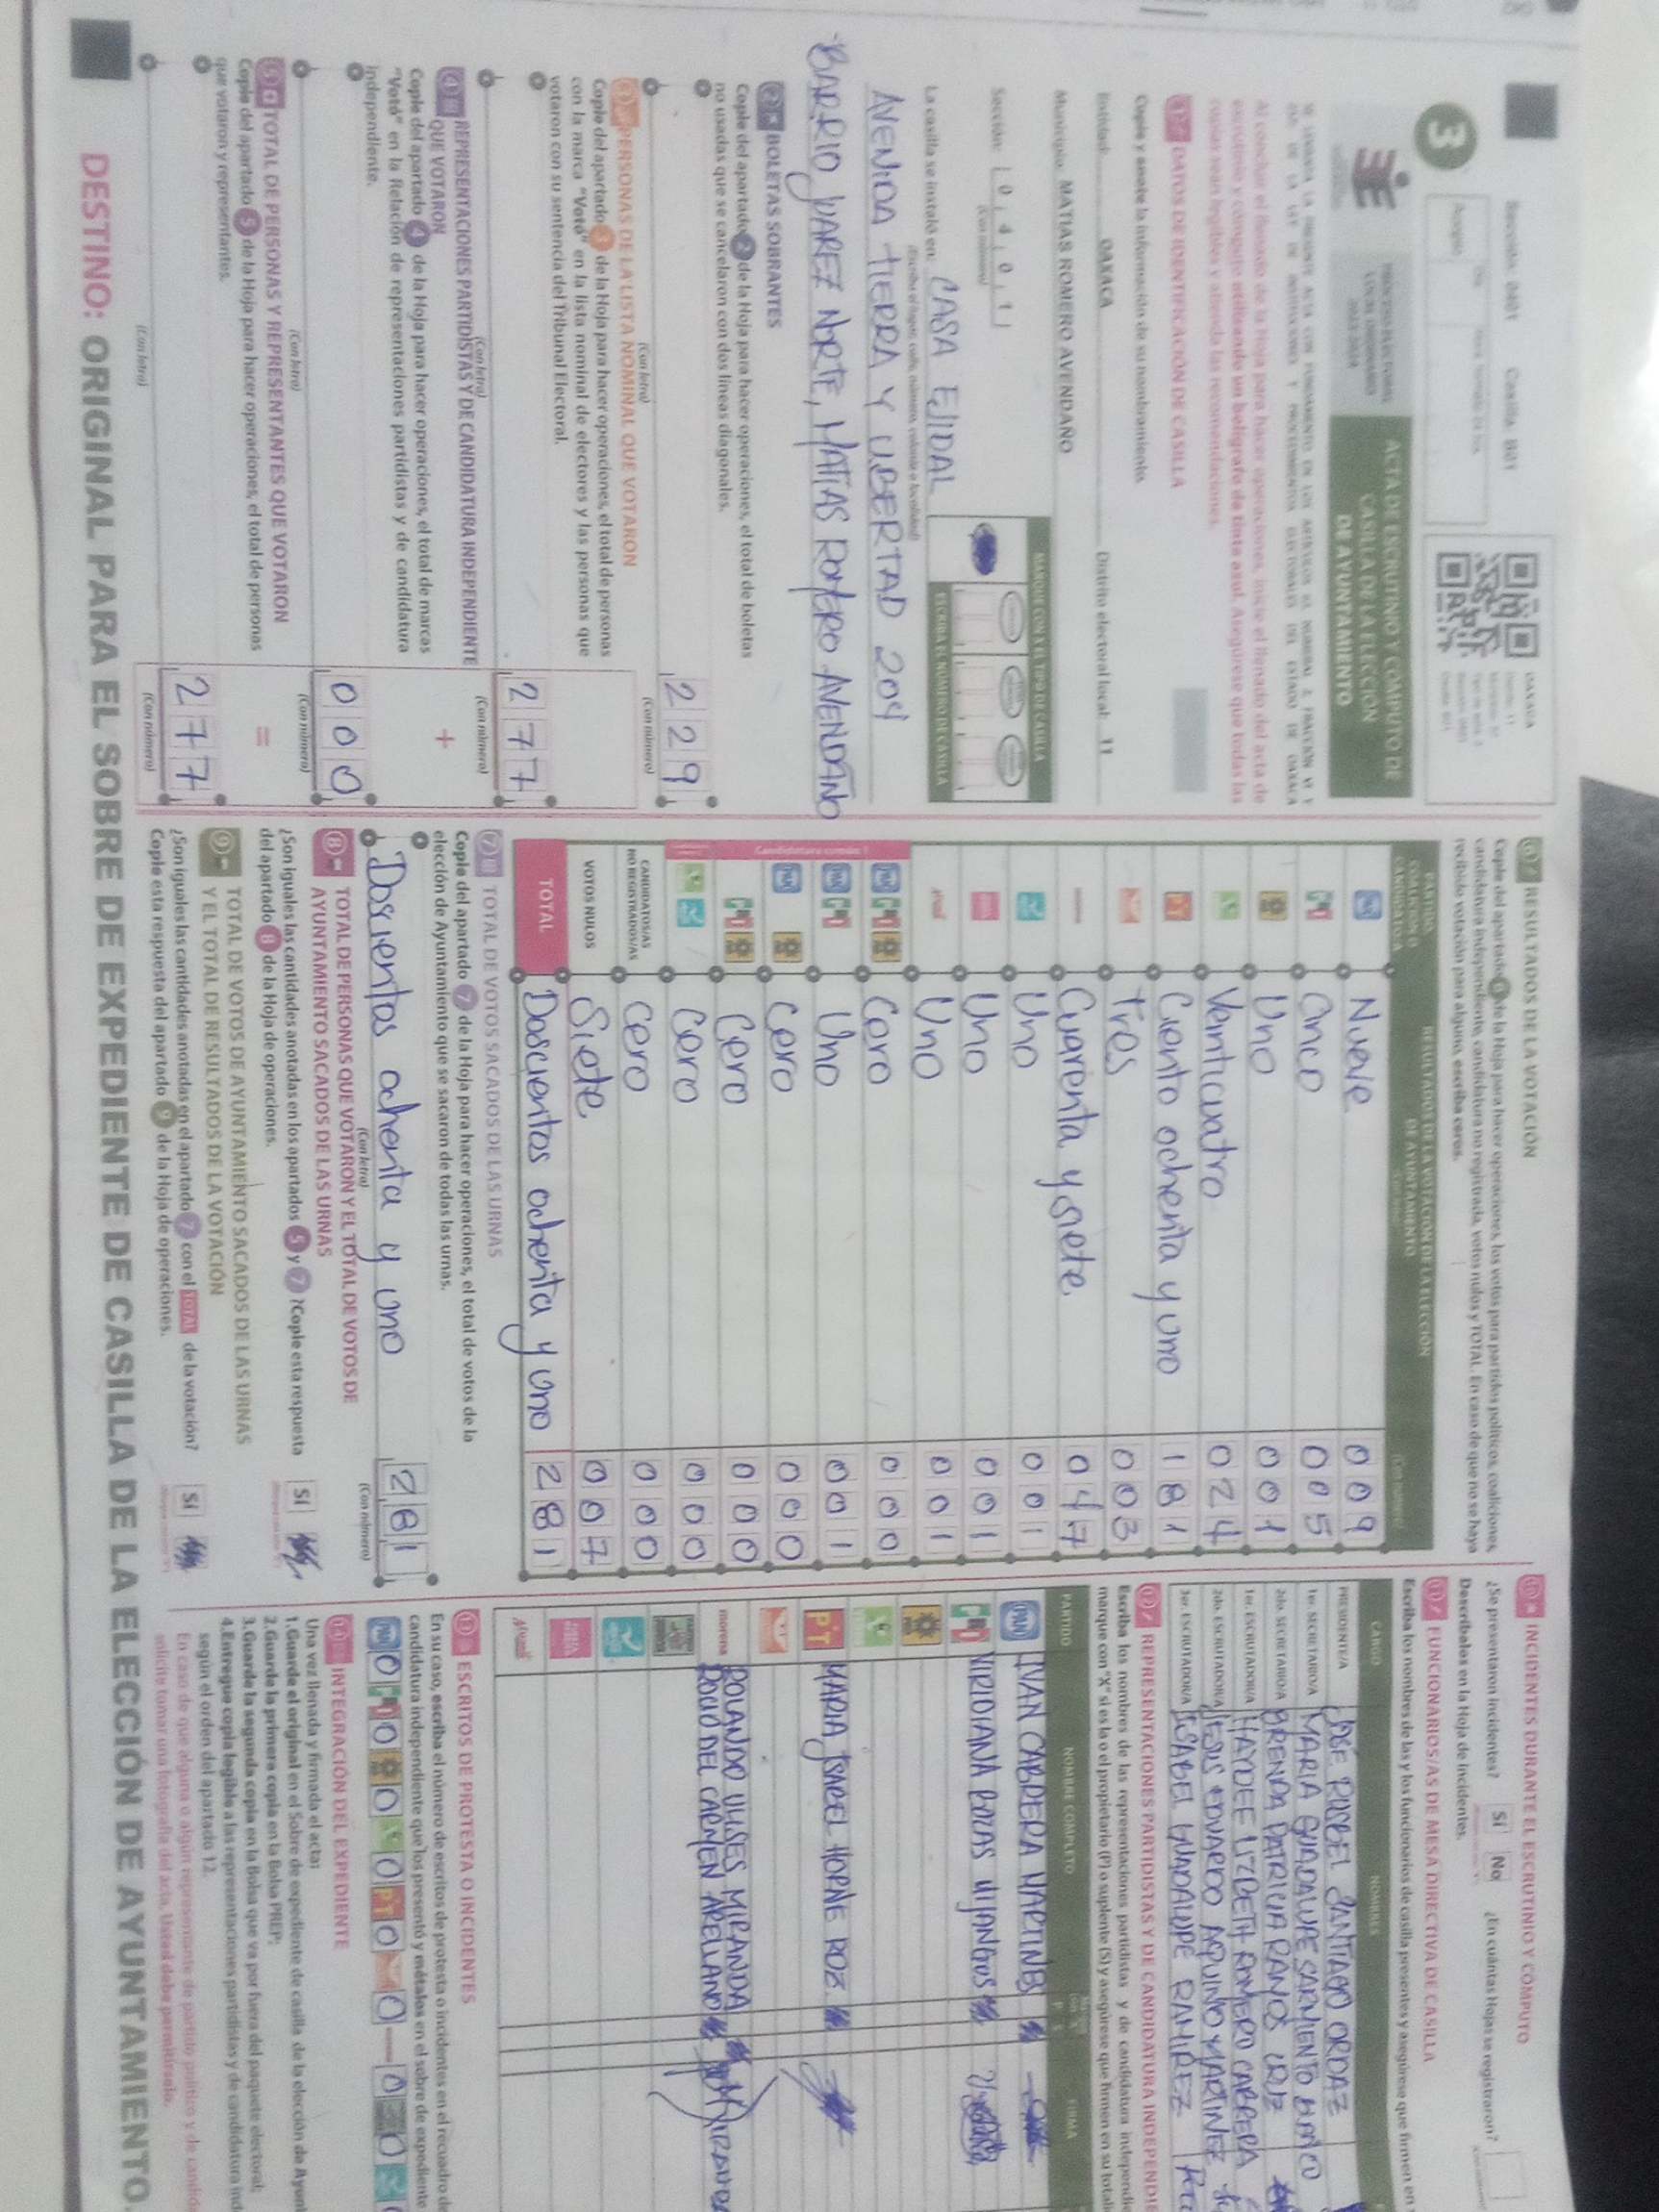 Sección: 0401 Casilla: B01
3
PROCESO ELECTORAL
LOCAL ORDINARIO
2023-2024
ACTA DE ESCRUTINIO Y CÓMPUTO DE
CASILLA DE LA ELECCIÓN
DE AYUNTAMIENTO
OAXACA
Al concluir el llenado de la Hoja para hacer operaciones, inicie el llenado del acta de
escrutinio y cómputo utilizando un bolígrafo de tinta azul. Asegúrese que todas las
copias sean legibles y atienda las recomendaciones.
1 DATOS DE IDENTIFICACIÓN DE CASILLA
Copie y anote la información de su nombramiento.
Entidad: OAXACA Distrito electoral local: 11
Municipio: MATIAS ROMERO AVENDAÑO
Sección: 0401
(Con número)
MARQUE CON X EL TIPO DE CASILLA
ESCRIBA EL NÚMERO DE CASILLA
La casilla se instaló en: CASA EJIDAL
(Escriba el lugar: calle, número, colonia o localidad)
AVENIDA TIERRA Y LIBERTAD 204
BARRIO JUAREZ NORTE, MATÍAS ROMERO AVENDAÑO
2 BOLETAS SOBRANTES
Copie del apartado 2 de la Hoja para hacer operaciones, el total de boletas
no usadas que se cancelaron con dos líneas diagonales.
229
(Con letra) (Con número)
3 PERSONAS DE LA LISTA NOMINAL QUE VOTARON
Copie del apartado 3 de la Hoja para hacer operaciones, el total de personas
con la marca "Votó" en la lista nominal de electores y las personas que
votaron con su sentencia del Tribunal Electoral.
277
(Con letra) (Con número)
4 REPRESENTACIONES PARTIDISTAS Y DE CANDIDATURA INDEPENDIENTE
QUE VOTARON
+
Copie del apartado 4 de la Hoja para hacer operaciones, el total de marcas
"Votó" en la Relación de representaciones partidistas y de candidatura
independiente.
000
(Con letra) (Con número)
5 TOTAL DE PERSONAS Y REPRESENTANTES QUE VOTARON
=
Copie del apartado 5 de la Hoja para hacer operaciones, el total de personas
que votaron y representantes.
277
(Con letra) (Con número)
6 RESULTADOS DE LA VOTACIÓN
Copie del apartado 6 de la Hoja para hacer operaciones, los votos para partidos políticos, coaliciones,
candidatura independiente, candidatura no registrada, votos nulos y TOTAL. En caso de que no se haya
recibido votación para alguno, escriba ceros.
RESULTADOS DE LA VOTACIÓN DE LA ELECCIÓN
DE AYUNTAMIENTO
PAN Nueve 009
PRI Cinco 005
Uno 001
Venticuatro 024
PT Ciento ochenta y uno 181
Tres 003
Cuarenta y siete 047
Uno 001
Uno 001
Uno 001
Candidatura común 1
PAN PRI Cero 000
PAN PRI Uno 001
PAN Cero 000
PRI Cero 000
Cero 000
CANDIDATOS/AS
NO REGISTRADOS/AS Cero 000
VOTOS NULOS Siete 007
TOTAL Doscientos ochenta y uno 281
7 TOTAL DE VOTOS SACADOS DE LAS URNAS
Copie del apartado 7 de la Hoja para hacer operaciones, el total de votos de la
elección de Ayuntamiento que se sacaron de todas las urnas.
Dosientos ochenta y uno 281
(Con letra) (Con número)
8 TOTAL DE PERSONAS QUE VOTARON Y EL TOTAL DE VOTOS DE
AYUNTAMIENTO SACADOS DE LAS URNAS
¿Son iguales las cantidades anotadas en los apartados 5 y 7? Copie esta respuesta
del apartado 8 de la Hoja de operaciones.
Sí
9 TOTAL DE VOTOS DE AYUNTAMIENTO SACADOS DE LAS URNAS
Y EL TOTAL DE RESULTADOS DE LA VOTACIÓN
¿Son iguales las cantidades anotadas en el apartado 7 con el TOTAL de la votación?
Copie esta respuesta del apartado 9 de la Hoja de operaciones.
Sí
10 INCIDENTES DURANTE EL ESCRUTINIO Y CÓMPUTO
¿Se presentaron incidentes? Sí No ¿En cuántas Hojas se registraron?
Descríbalos en la Hoja de incidentes.
11 FUNCIONARIOS/AS DE MESA DIRECTIVA DE CASILLA
Escriba los nombres de las y los funcionarios de casilla presentes y asegúrese que firmen en
CARGO NOMBRES
PRESIDENTE/A JOSÉ RUSBEL SANTIAGO ORDAZ
1er. SECRETARIO/A MARIA GUADALUPE SARMIENTO
2do. SECRETARIO/A BRENDA PATRICIA RAMOS
1er. ESCRUTADOR/A HAYDEE LIZBETH ROMERO CABRERA
2do. ESCRUTADOR/A JESUS EDUARDO AQUINO MARTINEZ
3er. ESCRUTADOR/A ISABEL GUADALUPE RAMIREZ
12 REPRESENTACIONES PARTIDISTAS Y DE CANDIDATURA INDEPENDIE
Escriba los nombres de las representaciones partidistas y de candidatura independi
marque con "X" si es la o el propietario (P) o suplente (S) y asegúrese que firmen en su total
PARTIDO NOMBRE COMPLETO FIRMA
PAN IVAN CABRERA MARTINES
PRI VIRIDIANA ROZAS HIJANGOS
PT MARIA ISABEL HORNE ROZ
morena ROLANDO ULISES MIRANDA
ROCIO DEL CARMEN ARELLANO
13 ESCRITOS DE PROTESTA O INCIDENTES
En su caso, escriba el número de escritos de protesta o incidentes en el recuadro de
candidatura independiente que los presentó y métalos en el sobre de expediente
PAN 0 PRI 0 0 0 PT 0 0 0 0
14 INTEGRACIÓN DEL EXPEDIENTE
Una vez llenada y firmada el acta:
1.Guarde el original en el Sobre de expediente de casilla de la elección de Ayun
2.Guarde la primera copia en la Bolsa PREP;
3.Guarde la segunda copia en la Bolsa que va por fuera del paquete electoral;
4.Entregue copia legible a las representaciones partidistas y de candidatura ind
según el orden del apartado 12.
En caso de que alguna o algún representante de partido político y de candid
solicite tomar una fotografía del acta, Usted debe permitírselo.
DESTINO: ORIGINAL PARA EL SOBRE DE EXPEDIENTE DE CASILLA DE LA ELECCIÓN DE AYUNTAMIENTO.